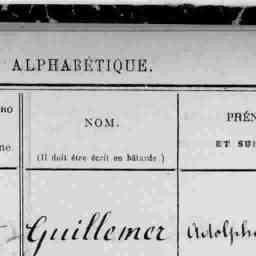 ALPHABÉTIQUE.
NOM.
(Il doit être écrit en bâtarde.)
PRÉN
ET SUI
Guillemer
Adolphe